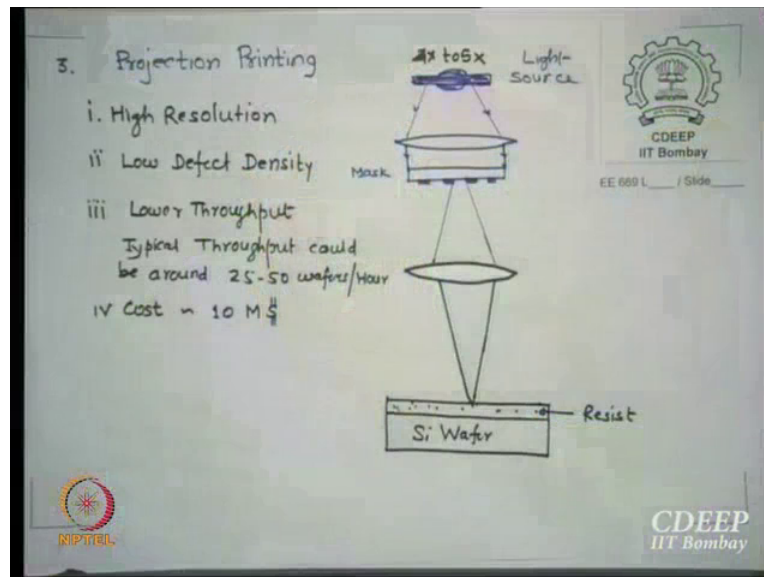 3. Projection Printing
i. High Resolution
ii Low Defect Density
iii Lower Throughput
Typical Throughput could
be around 25-50 wafers/Hour
iv Cost ~ 10 M$
4x to 5x
Light
Source
Mask
Resist
Si Wafer
CDEEP
IIT Bombay
EE 669 L____ / Slide____
NPTEL
CDEEP
IIT Bombay